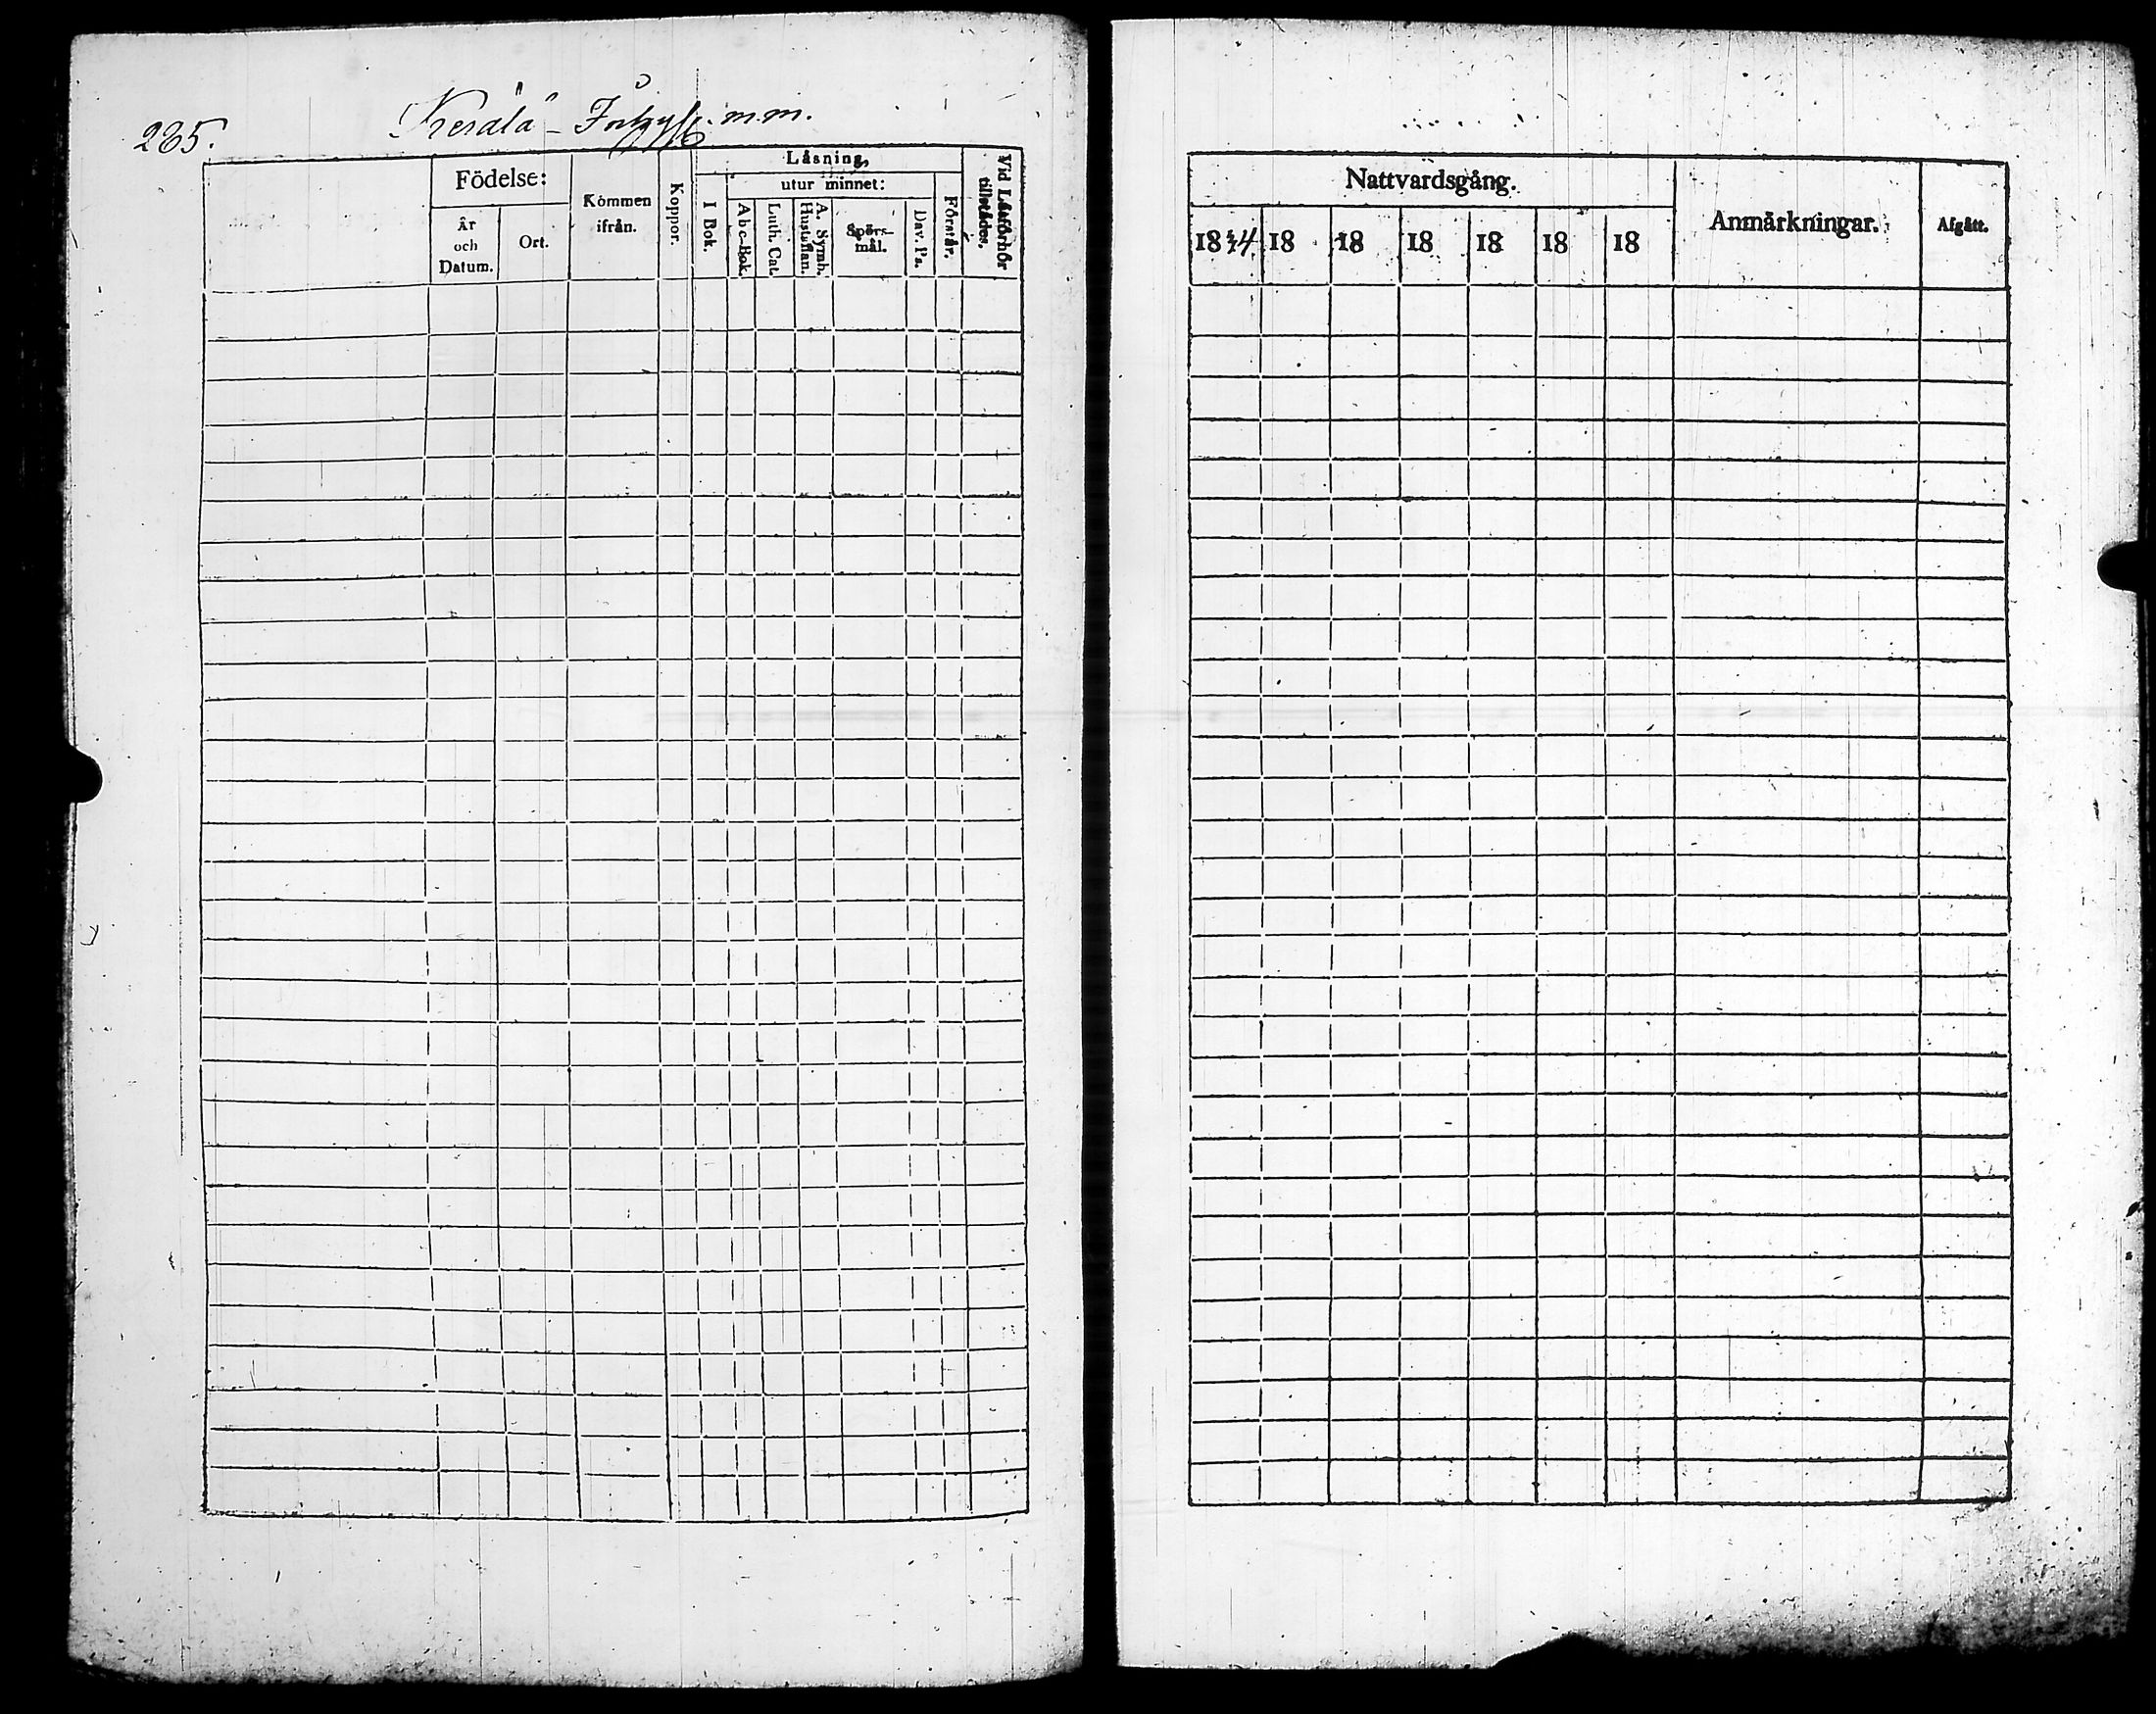 235.
m.m.
Födelse:
År och Datum.
Ort.
Kommen ifrån.
Koppor.
Läsning,
utur minnet:
I Bok.
Abc-Bok.
Luth. Cat.
A. Symb. Hustaflan.
Spörs-mål.
Dav. Ps.
Förstår.
Vid Läsförhör tillstädes.
Nattvardsgång.
18 18 18 18 18 18 18
Anmärkningar.
Afgått.